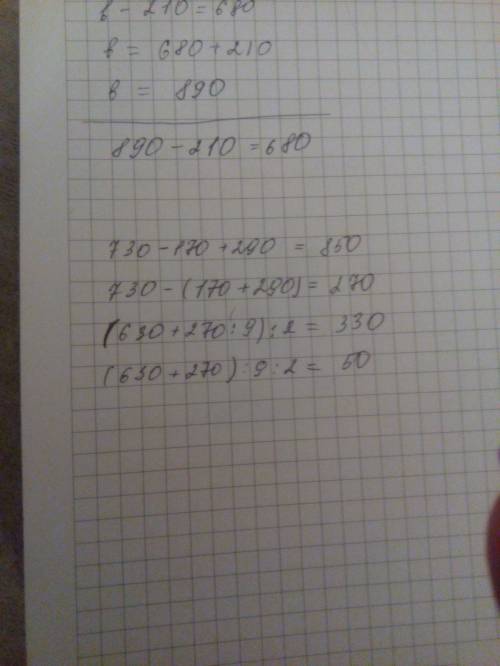 в - 210 = 680
в = 680 + 210
в = 890
890 - 210 = 680
730 - 170 + 290 = 850
730 - (170 + 290) = 270
(630 + 270 : 9) : 2 = 330
(630 + 270) : 9 : 2 = 50